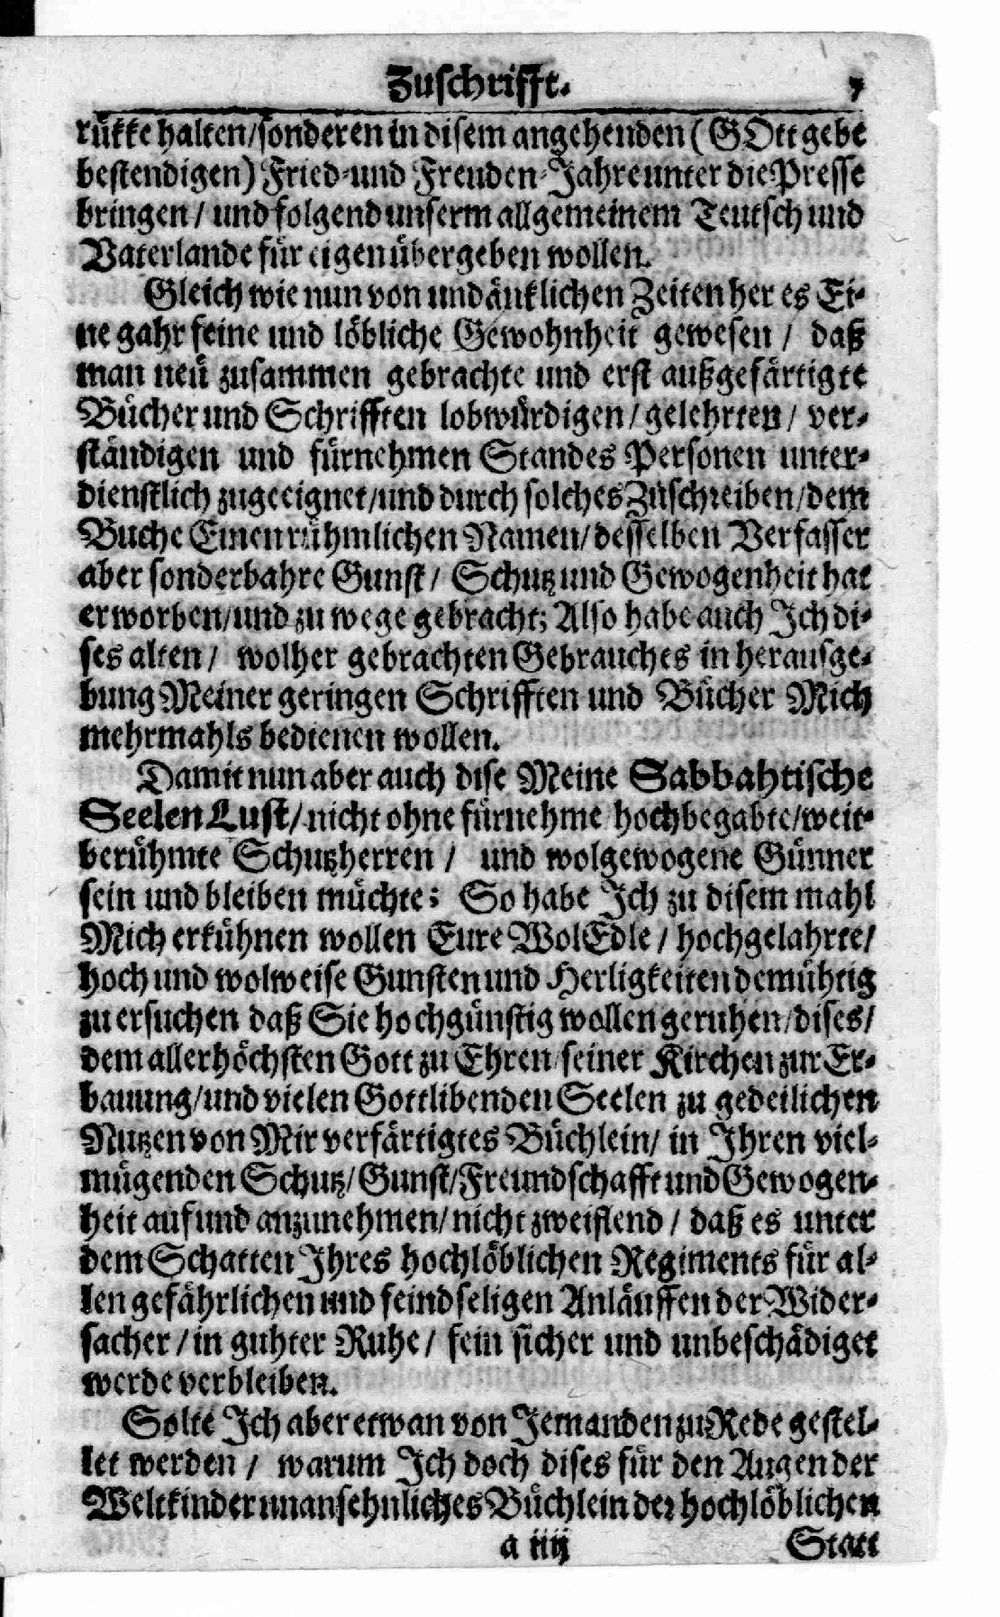 Zuschrifft. 7
rükke halten/sonderen in disem angehenden (GOtt gebe
bestendigen) Fried-und Freuden-Jahre unter die Presse
bringen / und folgend unserm allgemeinem Teutsch und
Vaterlande für eigen übergeben wollen.
Gleich wie nun von undänklichen Zeiten her es Ei-
ne gahr feine und löbliche Gewohnheit gewesen / daß
man neü zusammen gebrachte und erst außgefärtigte
Bücher und Schrifften lobwürdigen / gelehrten / ver-
ständigen und fürnehmen Standes Personen unter-
dienstlich zugeeignet/und durch solches Zuschreiben/dem
Buche Einen rühmlichen Namen/desselben Verfasser
aber sonderbahre Gunst / Schutz und Gewogenheit hat
erworben/und zu wege gebracht; Also habe auch Ich di-
ses alten / wolher gebrachten Gebrauches in herausge-
bung Meiner geringen Schrifften und Bücher Mich
mehrmahls bedienen wollen.
Damit nun aber auch dise Meine Sabbahtische
Seelen Lust/nicht ohne fürnehme hochbegabte/weit-
berühmte Schutzherren / und wolgewogene Günner
sein und bleiben müchte; So habe Ich zu disem mahl
Mich erkühnen wollen Eure WolEdle / hochgelahrte/
hoch und wolweise Gunsten und Herligkeiten demühtig
zu ersuchen daß Sie hochgünstig wollen geruhen/dises/
dem allerhöchsten Gott zu Ehren/seiner Kirchen zur Er-
bauung/und vielen Gottlibenden Seelen zu gedeilichen
Nutzen von Mir verfärtigtes Büchlein/ in Ihren viel-
mügenden Schutz/Gunst/Freundschafft und Gewogen-
heit auf und anzunehmen/nicht zweiflend / daß es unter
dem Schatten Ihres hochlöblichen Regiments für al-
len gefährlichen und feindseligen Anläuffen der Wider-
sacher / in guhter Ruhe / fein sicher und unbeschädiget
werde verbleiben.
Solte Ich aber etwan von Jemanden zu Rede gestel-
let werden / warum Ich doch dises für den Augen der
Weltkinder unansehnliches Büchlein der hochlöblichen
a iiij Statt